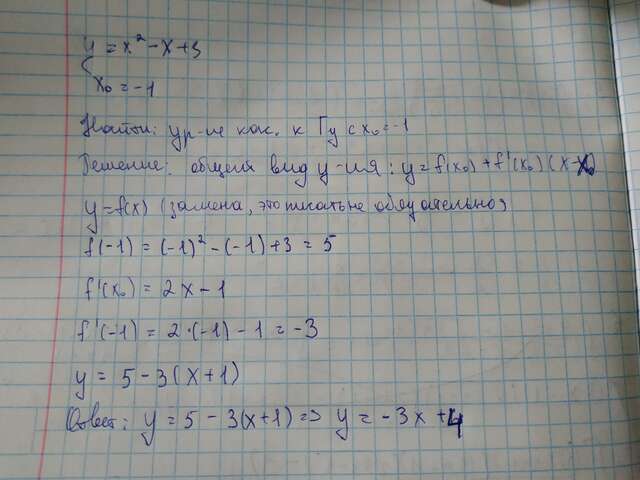 y = x² - x + 3
x₀ = -1
Найти: ур-ие кас. к Гу с x₀ = -1
Решение: общий вид у-ия: y = f(x₀) + f'(x₀)(x - x₀)
y = f(x) (замена, это писать не обязательно)
f(-1) = (-1)² - (-1) + 3 = 5
f'(x₀) = 2x - 1
f'(-1) = 2·(-1) - 1 = -3
y = 5 - 3(x+1)
Ответ: y = 5 - 3(x+1) => y = -3x + 4